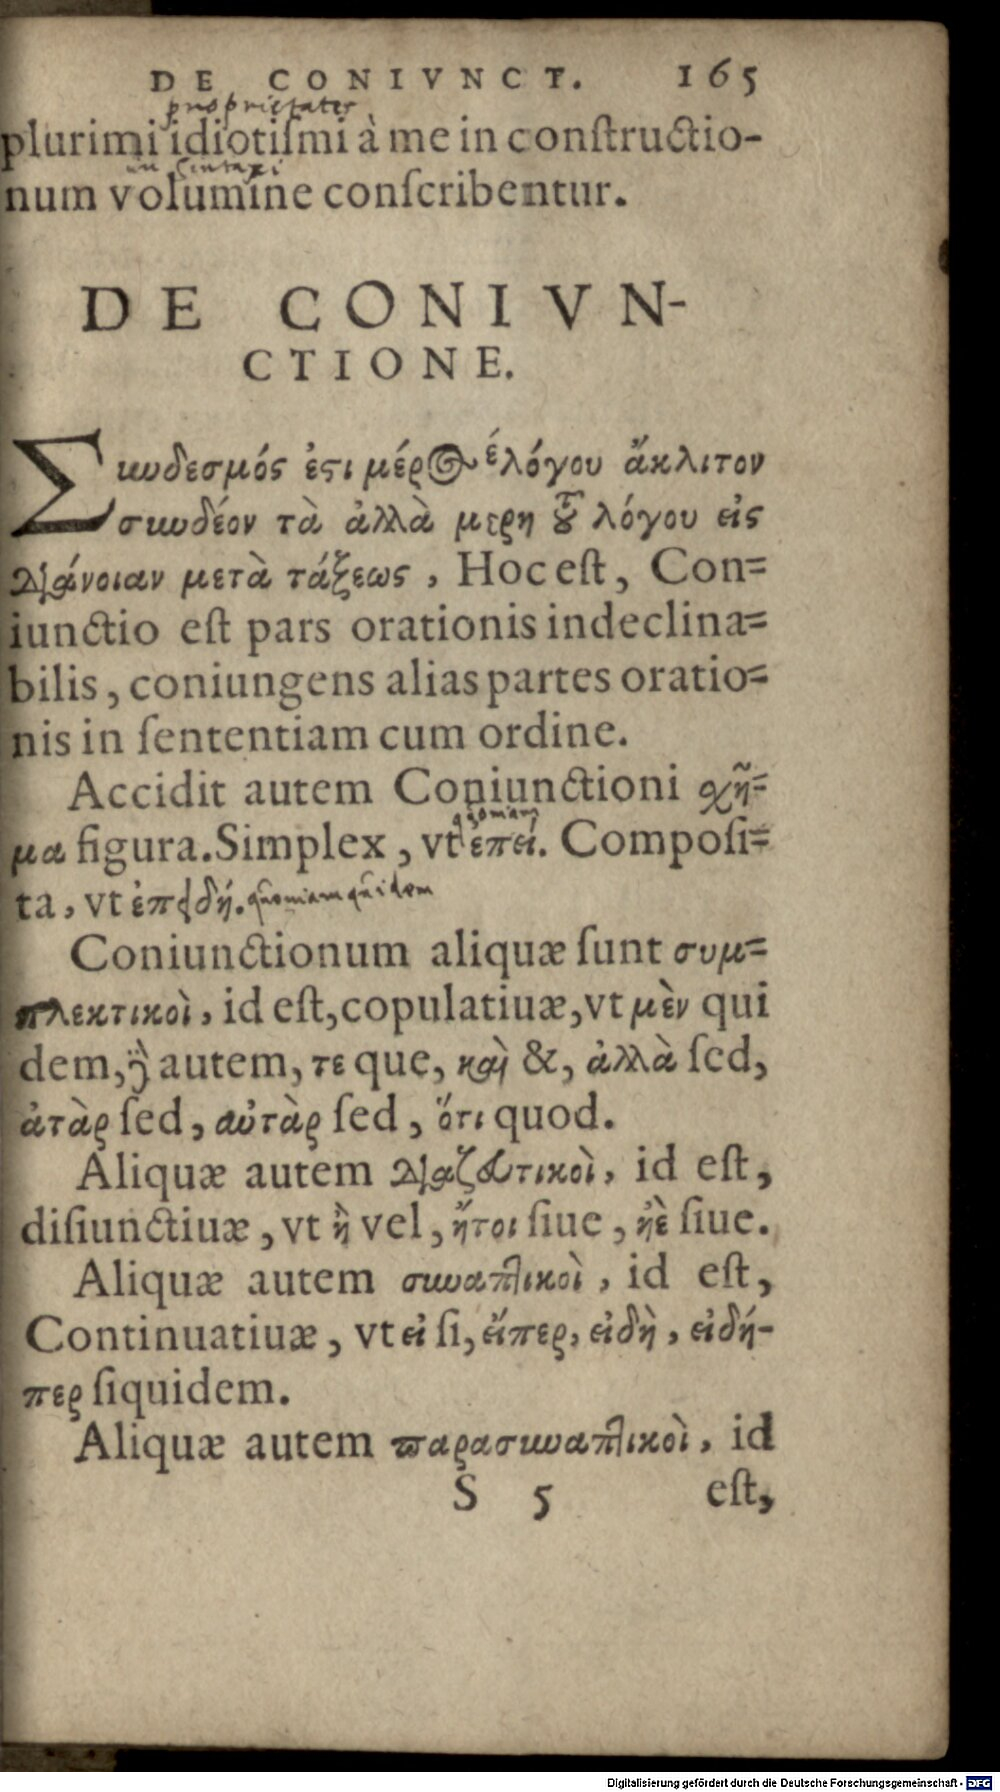 DE CONIVNCT. 165
proprietates
plurimi idiotiſmi à me in conſtructio-
in Sintaxi
num volumine conſcribentur.
DE CONIVN-
CTIONE.
Συνδεσμός ἐστι μέρος λόγου ἄκλιτον
συνδέον τὰ ἀλλὰ μερη τοῦ λόγου εἰς
διάνοιαν μετὰ τάξεως, Hoc eſt, Con-
iunctio eſt pars orationis indeclina-
bilis, coniungens alias partes oratio-
nis in ſententiam cum ordine.
Accidit autem Coniunctioni σχῆ-
quoniam
μα figura. Simplex, vt ἐπεί. Compoſi-
ta, vt ἐπειδή. quoniam quidem
Coniunctionum aliquæ ſunt συμ-
πλεκτικοὶ, id eſt, copulatiuæ, vt μὲν qui
dem, δὲ autem, τε que, καὶ &, ἀλλὰ ſed,
ἀτὰρ ſed, αὐτὰρ ſed, ὅτι quod.
Aliquæ autem διαζευκτικοὶ, id eſt,
diſiunctiuæ, vt ἢ vel, ἤτοι ſiue, ἠὲ ſiue.
Aliquæ autem συναπτικοὶ, id eſt,
Continuatiuæ, vt εἰ ſi, εἴπερ, εἰδὴ, εἰδή-
περ ſiquidem.
Aliquæ autem παρασυναπτικοὶ, id
S 5 eſt,
Digitalisierung gefördert durch die Deutsche Forschungsgemeinschaft - DFG